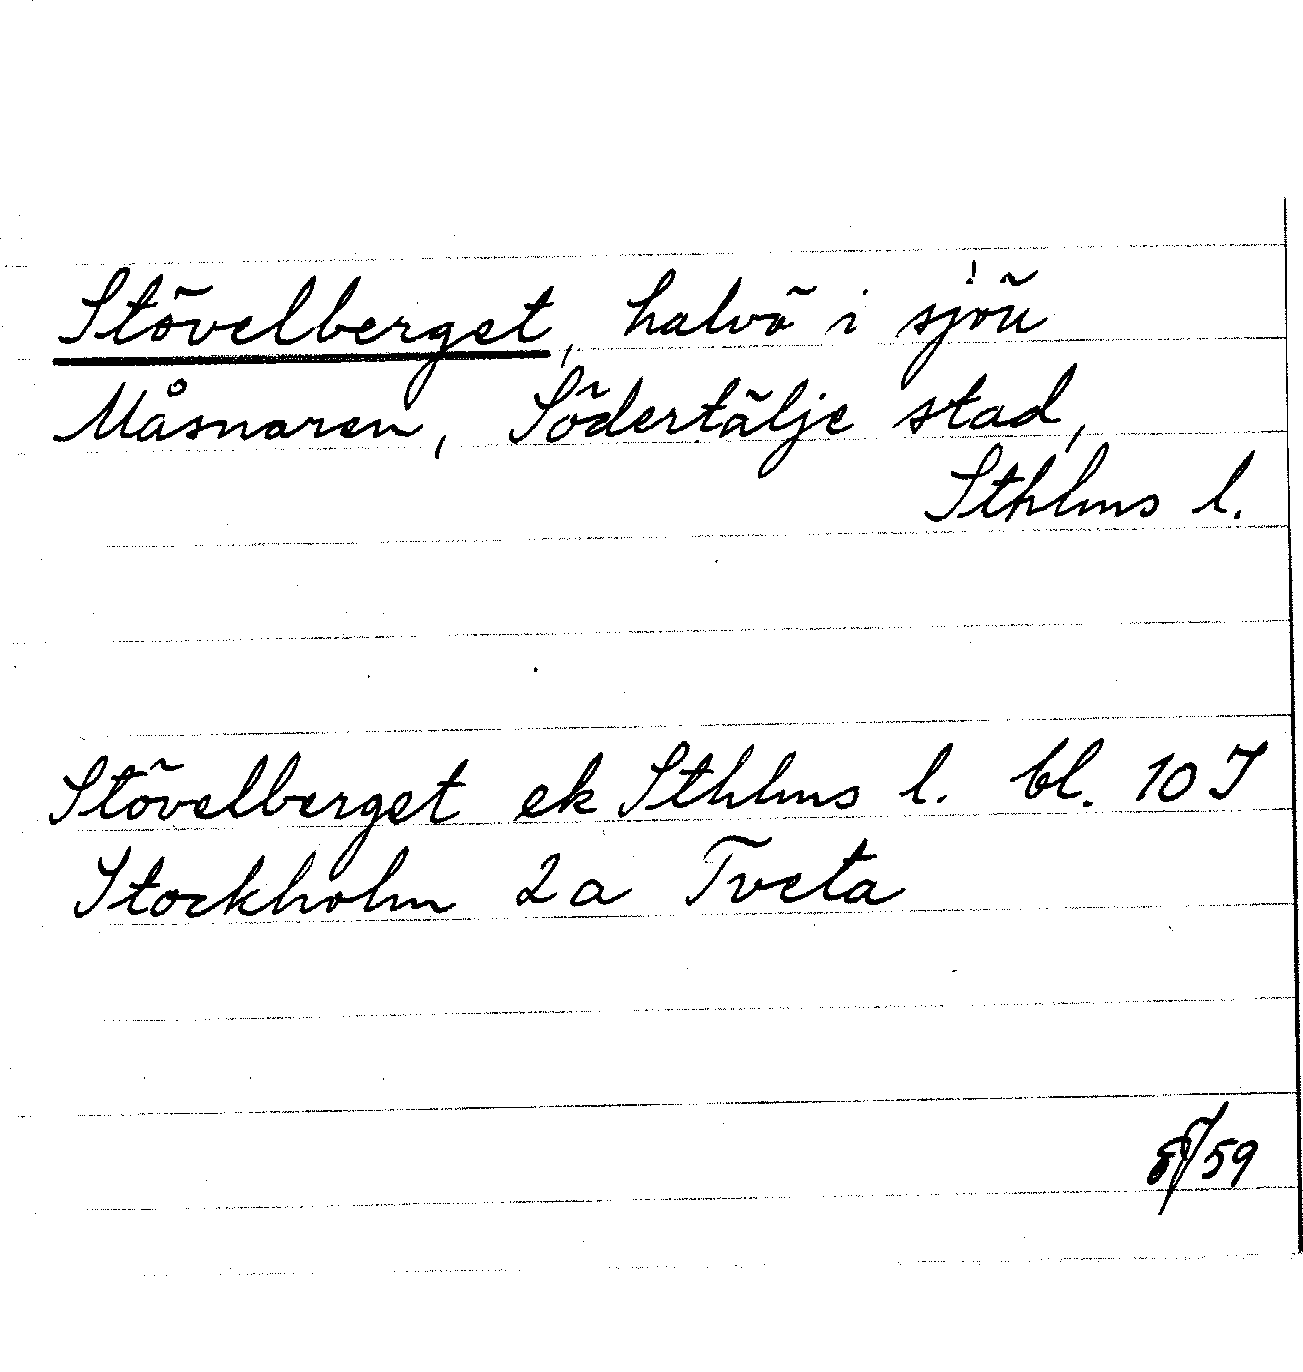 Stövelberget, halvö i sjön
Måsnaren, Södertälje stad,
Sthlms l.
Stövelberget ek Sthlms l. bl. 10 I
Stockholm 2a Tveta
/59